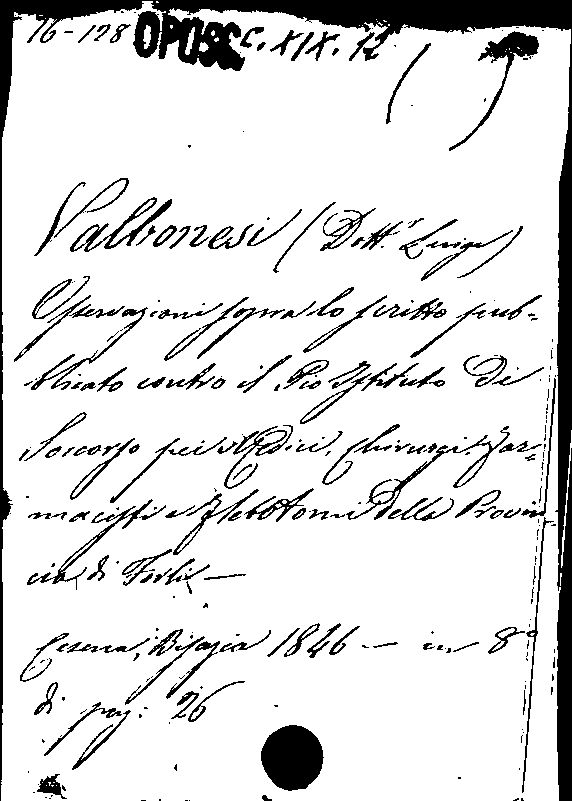 76-128 OPUSC C. XIX. 12
Valbonesi (Dott.r Luigi)
Osservazioni sopra lo scritto pub-
blicato contro il Pio Istituto di
Soccorso pei Medici, Chirurgi, Far-
macisti e Flebotomi della Provin-
cia di Forlì —
Cesena, Bisazia 1846 — in 8°
di pag: 26